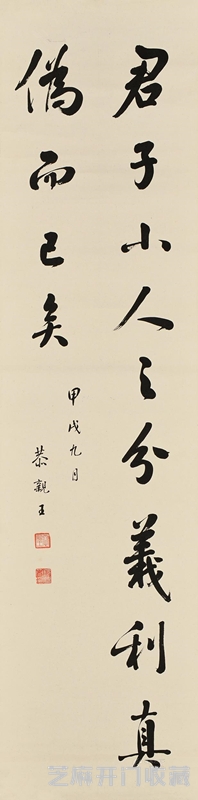 君子小人之分義利真
偽而已矣
甲戌九月
恭親王
芝麻开门收藏